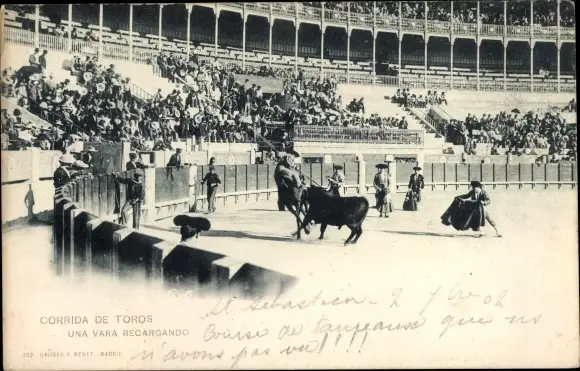 CORRIDA DE TOROS
UNA VARA RECARGANDO
102 HAUSER Y MENET.-MADRID
St Sebastien - 2 02
Course de taureaux que nous
n'avons pas vu!!!!